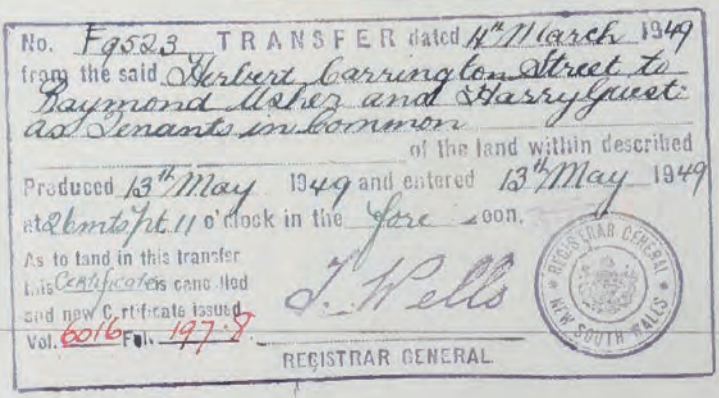 No. F9523 TRANSFER dated 4th March 1949
from the said Herbert Carrington Street to
Raymond Usher and Harry Guest
as Tenants in Common
of the land within described
Produced 13th May 1949 and entered 13th May 1949
at 26 mts pt 11 o'clock in the fore noon.
As to land in this transfer
this Certificate is cancelled
and new Certificate issued
Vol. 6016 Fol. 197-8
J. Wells
REGISTRAR GENERAL.
REGISTRAR GENERAL
NEW SOUTH WALES